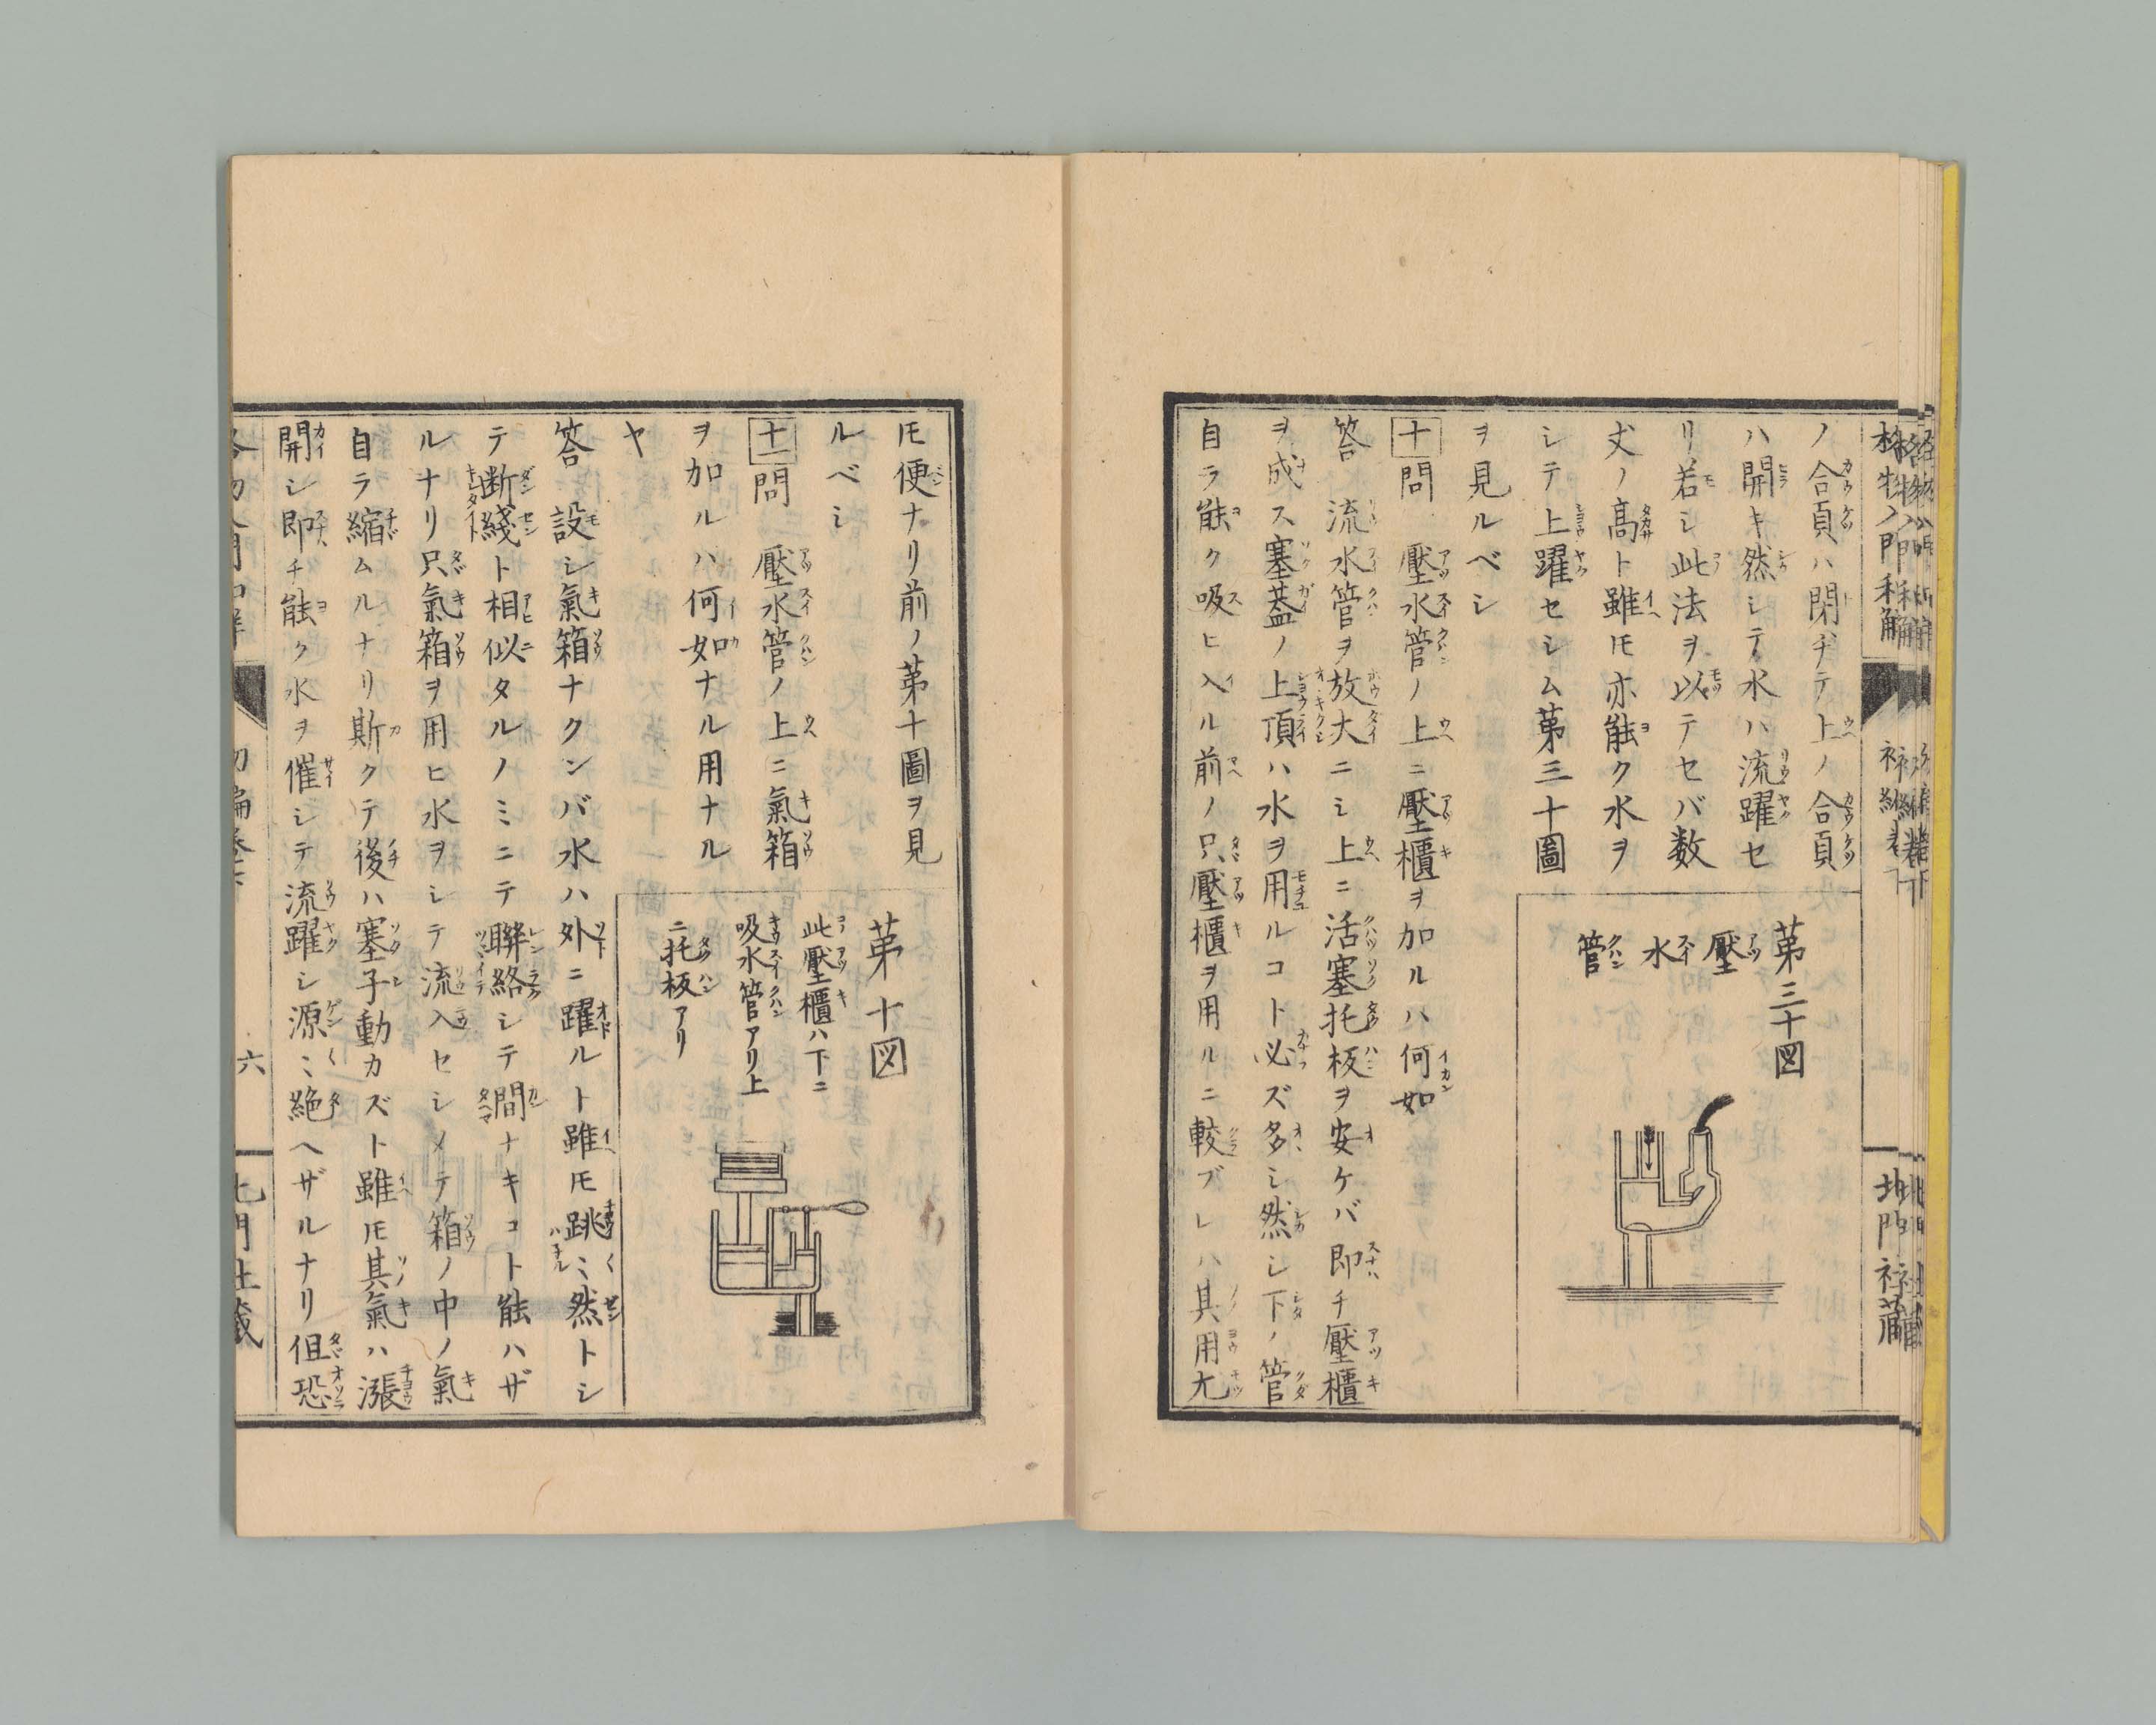 ノ合頁ハ閉ヂテ上ノ合頁
ハ開キ然シテ水ハ流躍セ
リ若シ此法ヲ以テセバ数
丈ノ高ト雖モ亦能ク水ヲ
シテ上躍セシム第三十圖
ヲ見ルベシ
第三十図
壓水管
十問 壓水管ノ上ニ壓櫃ヲ加ルハ何如
答 流水管ヲ放大ニシ上ニ活塞托板ヲ安ケバ即チ壓櫃
ヲ成ス塞葢ノ上頂ハ水ヲ用ルコト必ズ多シ然シ下ノ管
自ラ能ク吸ヒ入ル前ノ只壓櫃ヲ用ルニ較ブレハ其用尤
モ便ナリ前ノ第十圖ヲ見
ルベシ
十一問 壓水管ノ上ニ氣箱
ヲ加ルハ何如ナル用ナル
ヤ
第十図
此壓櫃ハ下ニ
吸水管アリ上
ニ托板アリ
答 設シ氣箱ナクンバ水ハ外ニ躍ルト雖モ跳〻然トシ
テ断綫ト相似タルノミニテ聯絡シテ間ナキコト能ハザ
ルナリ只氣箱ヲ用ヒ水ヲシテ流入セシメテ箱ノ中ノ氣
自ラ縮ムルナリ斯クテ後ハ塞子動カズト雖モ其氣ハ漲
開シ即チ能ク水ヲ催シテ流躍シ源〻絶ヘザルナリ伹恐
六